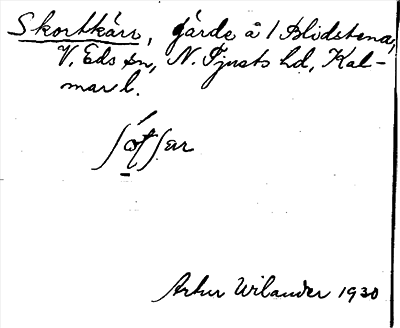 Skortkärr, gärde å 1 Blidstena,
V. Eds sn, N. Tjusts hd, Kal-
mar l.
Artur Wilander 1930